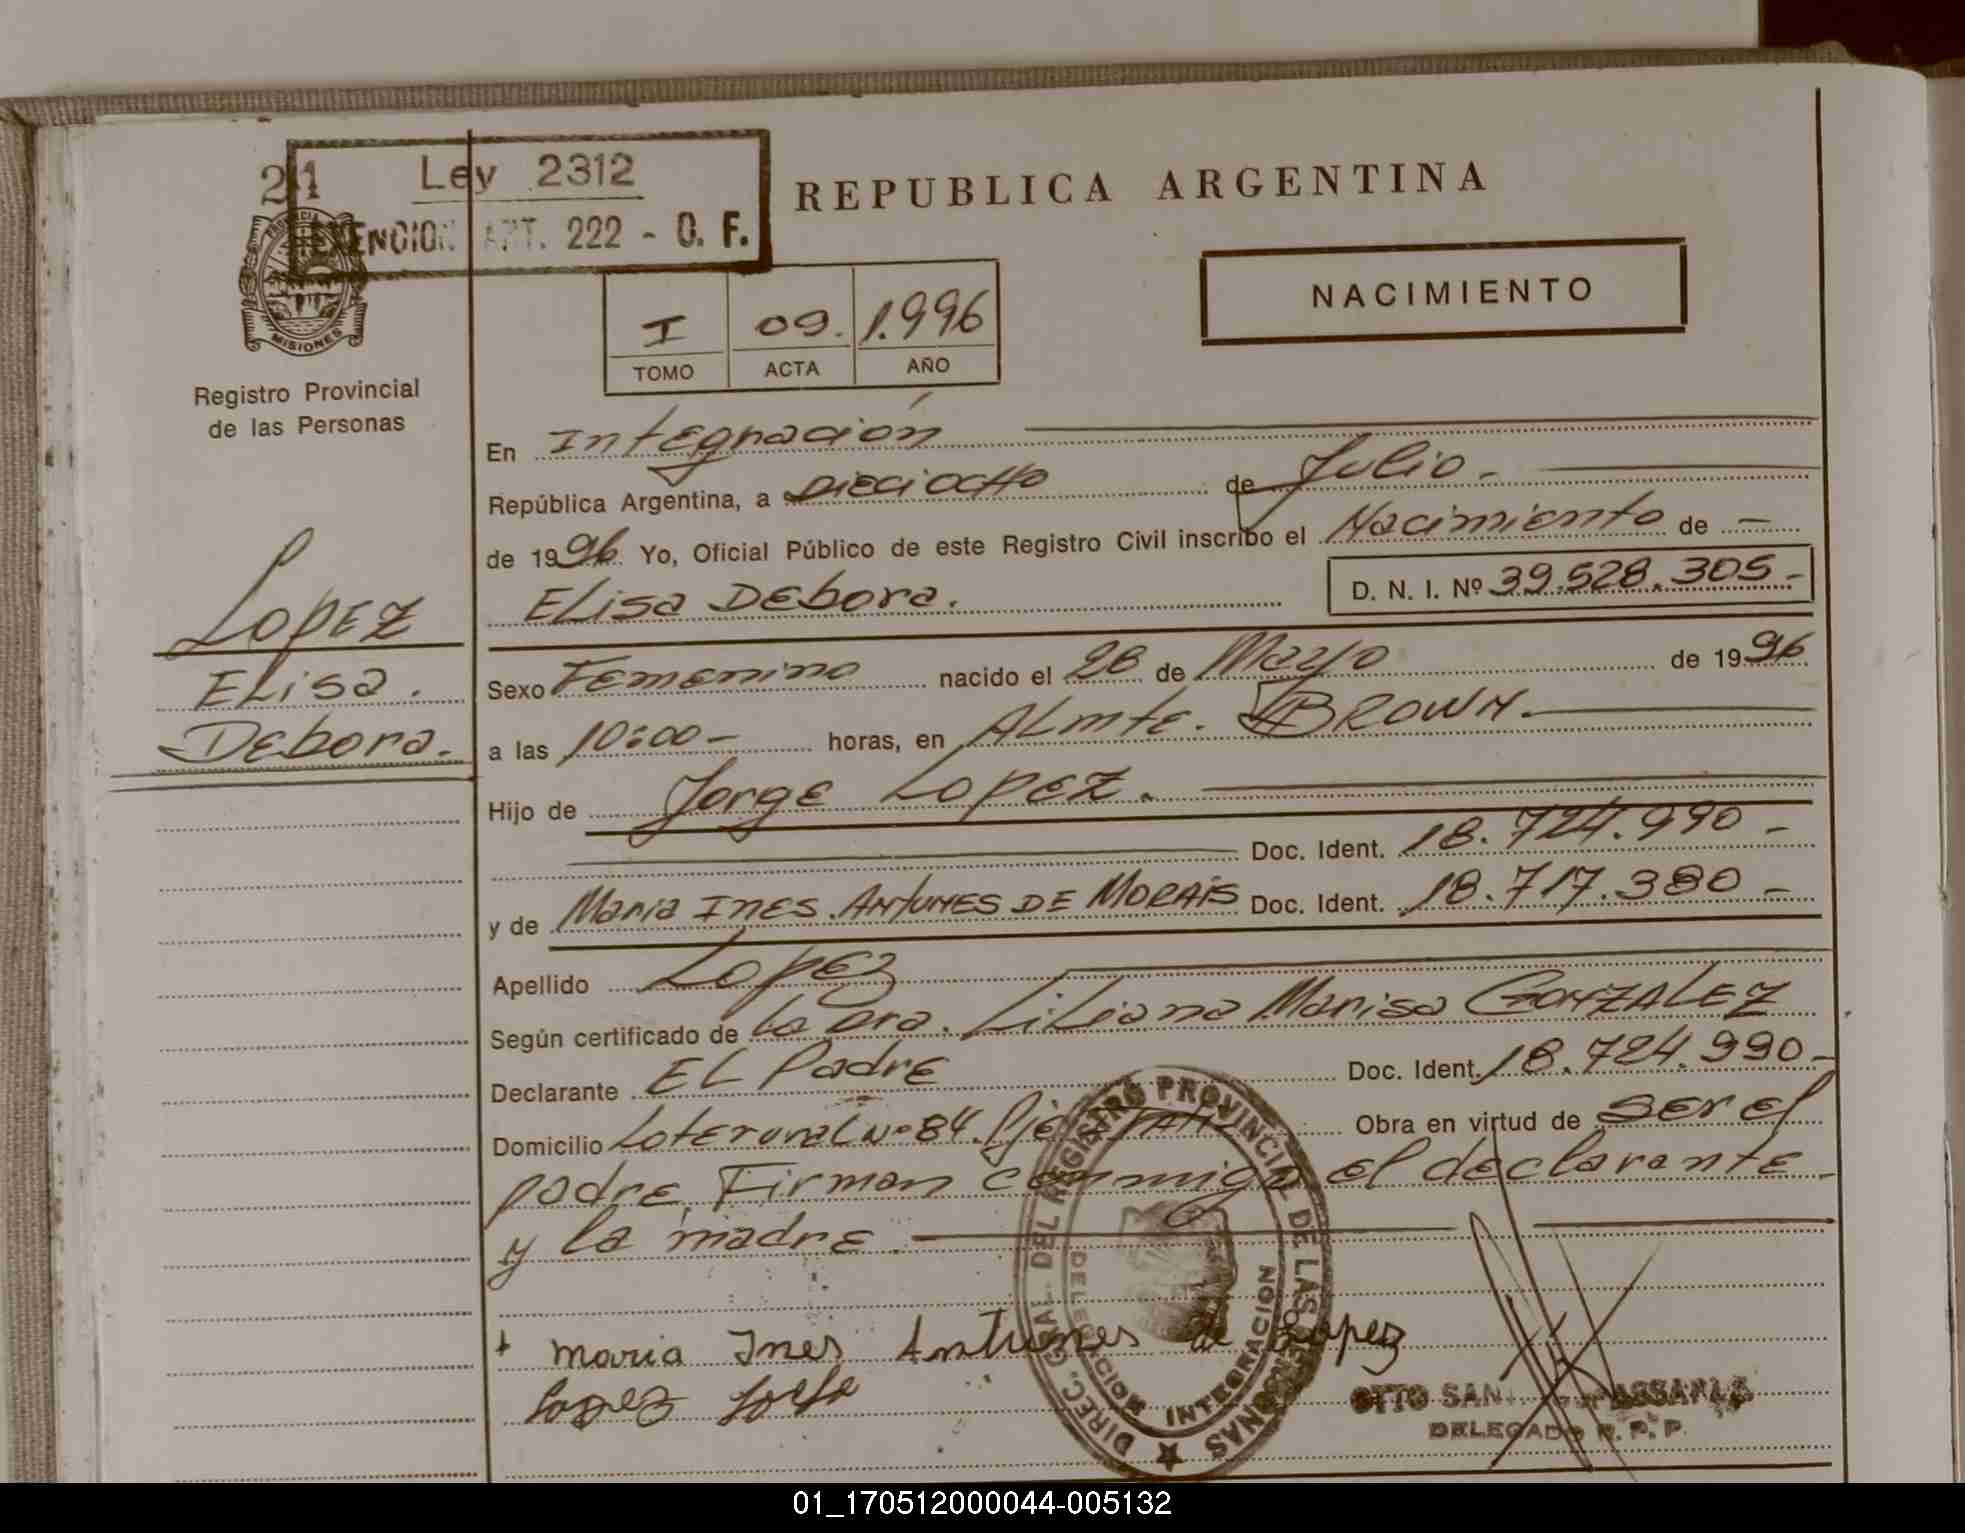 21
Ley 2312
EXENCION ART. 222 - O. F.
REPUBLICA ARGENTINA
PROVINCIA
MISIONES
NACIMIENTO
I 09. 1.996
TOMO ACTA AÑO
Registro Provincial
de las Personas
En Integración
República Argentina, a Dieciocho de Julio -
de 1996. Yo, Oficial Público de este Registro Civil inscribo el Nacimiento de -
Elisa Debora. D. N. I. Nº 39.528.305-
Lopez
Elisa.
Debora.
Sexo Femenino nacido el 28 de Mayo de 1996
a las 10:00- horas, en Almte. BROWN.
Hijo de Jorge Lopez.
Doc. Ident. 18.724.990-
y de Maria Ines Antunes de Morais Doc. Ident. 18.717.380-
Apellido Lopez
Según certificado de la Dra. Liliana Marisa Gonzalez
Declarante El Padre Doc. Ident. 18.724.990-
Domicilio Lote rural Nº 84. Pje Obra en virtud de ser el
padre, Firman conmigo el declarante
y la madre.
+ Maria Ines Antunes de Lopez
Lopez Jorge
DIREC. GRAL. DEL REGISTRO PROVINCIAL DE LAS PERSONAS
DELEGACION INTEGRACION
OTTO
DELEGADO R. P. P.
01_170512000044-005132